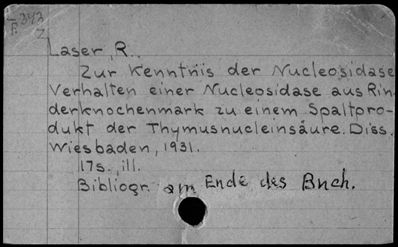 I 373
F. Z
Laser, R.
Zur Kenntnis der Nucleosidase
Verhalten einer Nucleosidase aus Rin-
derknochenmark zu einem Spaltpro-
dukt der Thymusnucleinsäure. Diss.
Wiesbaden, 1931.
17s., ill.
Bibliogr. am Ende des Buch.